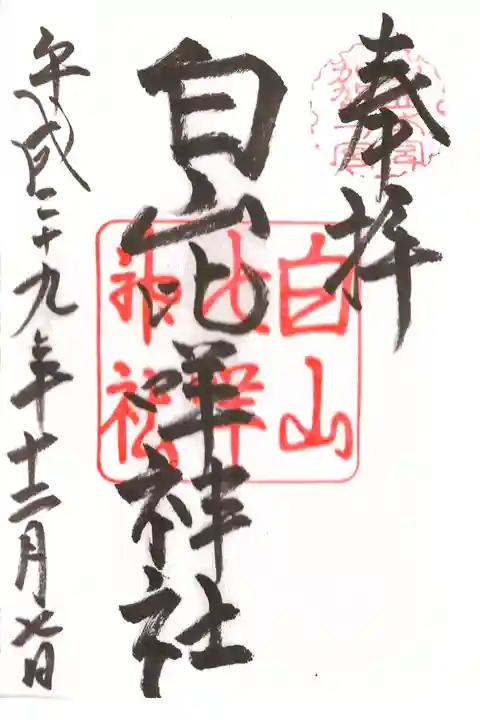 奉拝
白山比咩神社
白山
比咩
神社
平成二十九年十二月七日